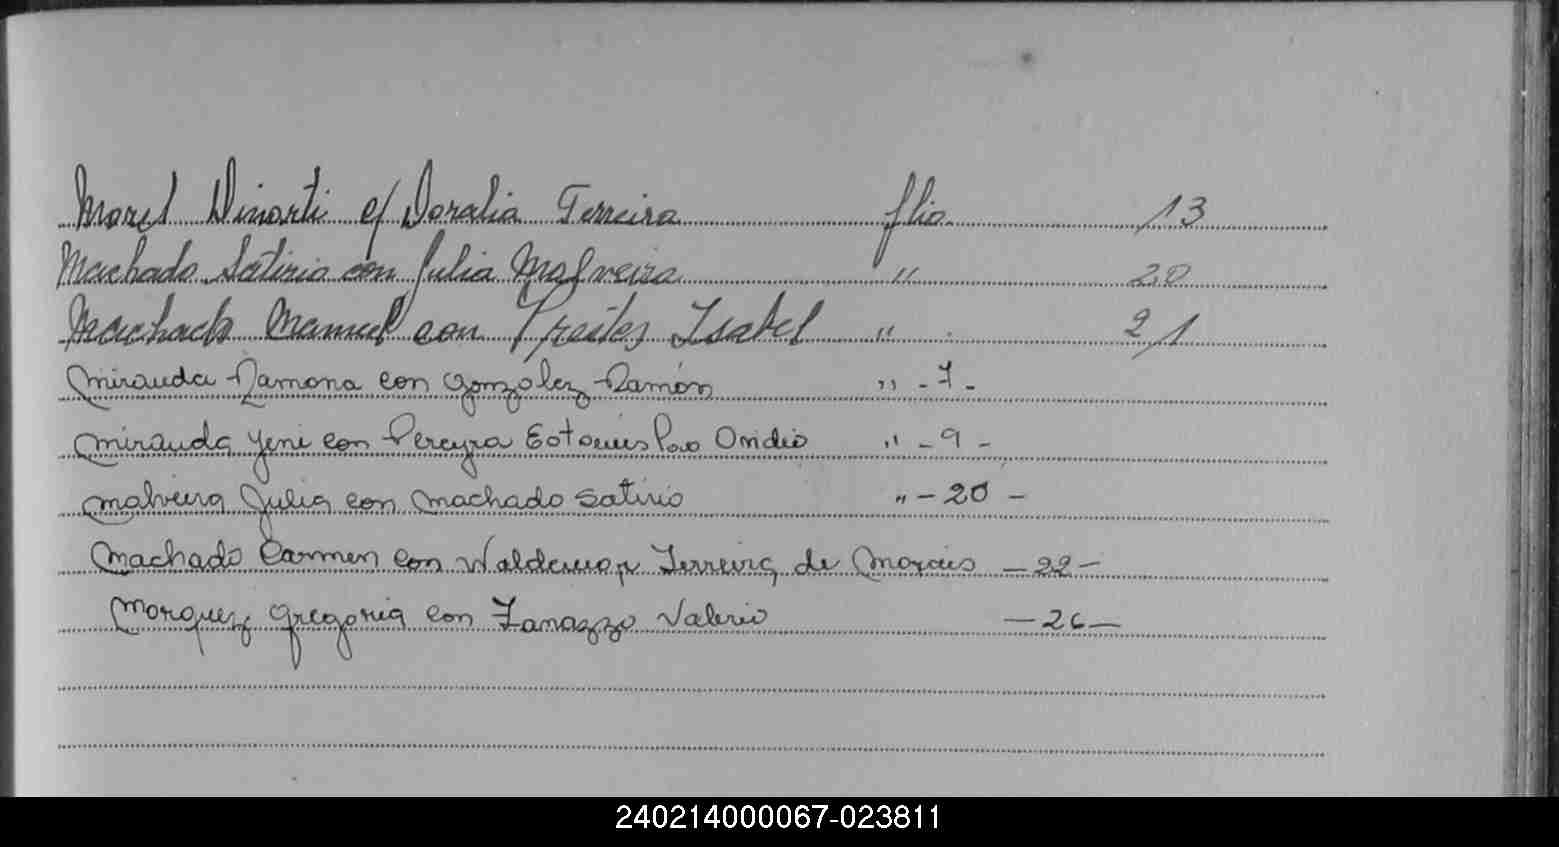 Morel Dinarti c/ Doralia Ferreira flio. 13
Machado Satirio con Julia Malveira " 20
Machado Manuel con Freites Isabel " 21
Miranda Ramona con González Ramón " - 7 -
Miranda Yeni con Pereyra Ovidio " - 9 -
Malveira Julia con Machado Satirio " - 20 -
Machado Carmen con Waldemar Ferreira de Morais - 22 -
Marquez Gregoria con Zanazzo Valerio - 26 -
240214000067-023811